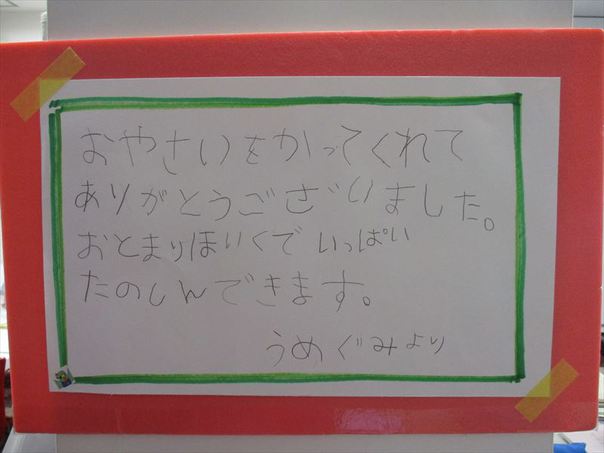 おやさいをかってくれて
ありがとうございました。
おとまりほいくでいっぱい
たのしんできます。
うめぐみより